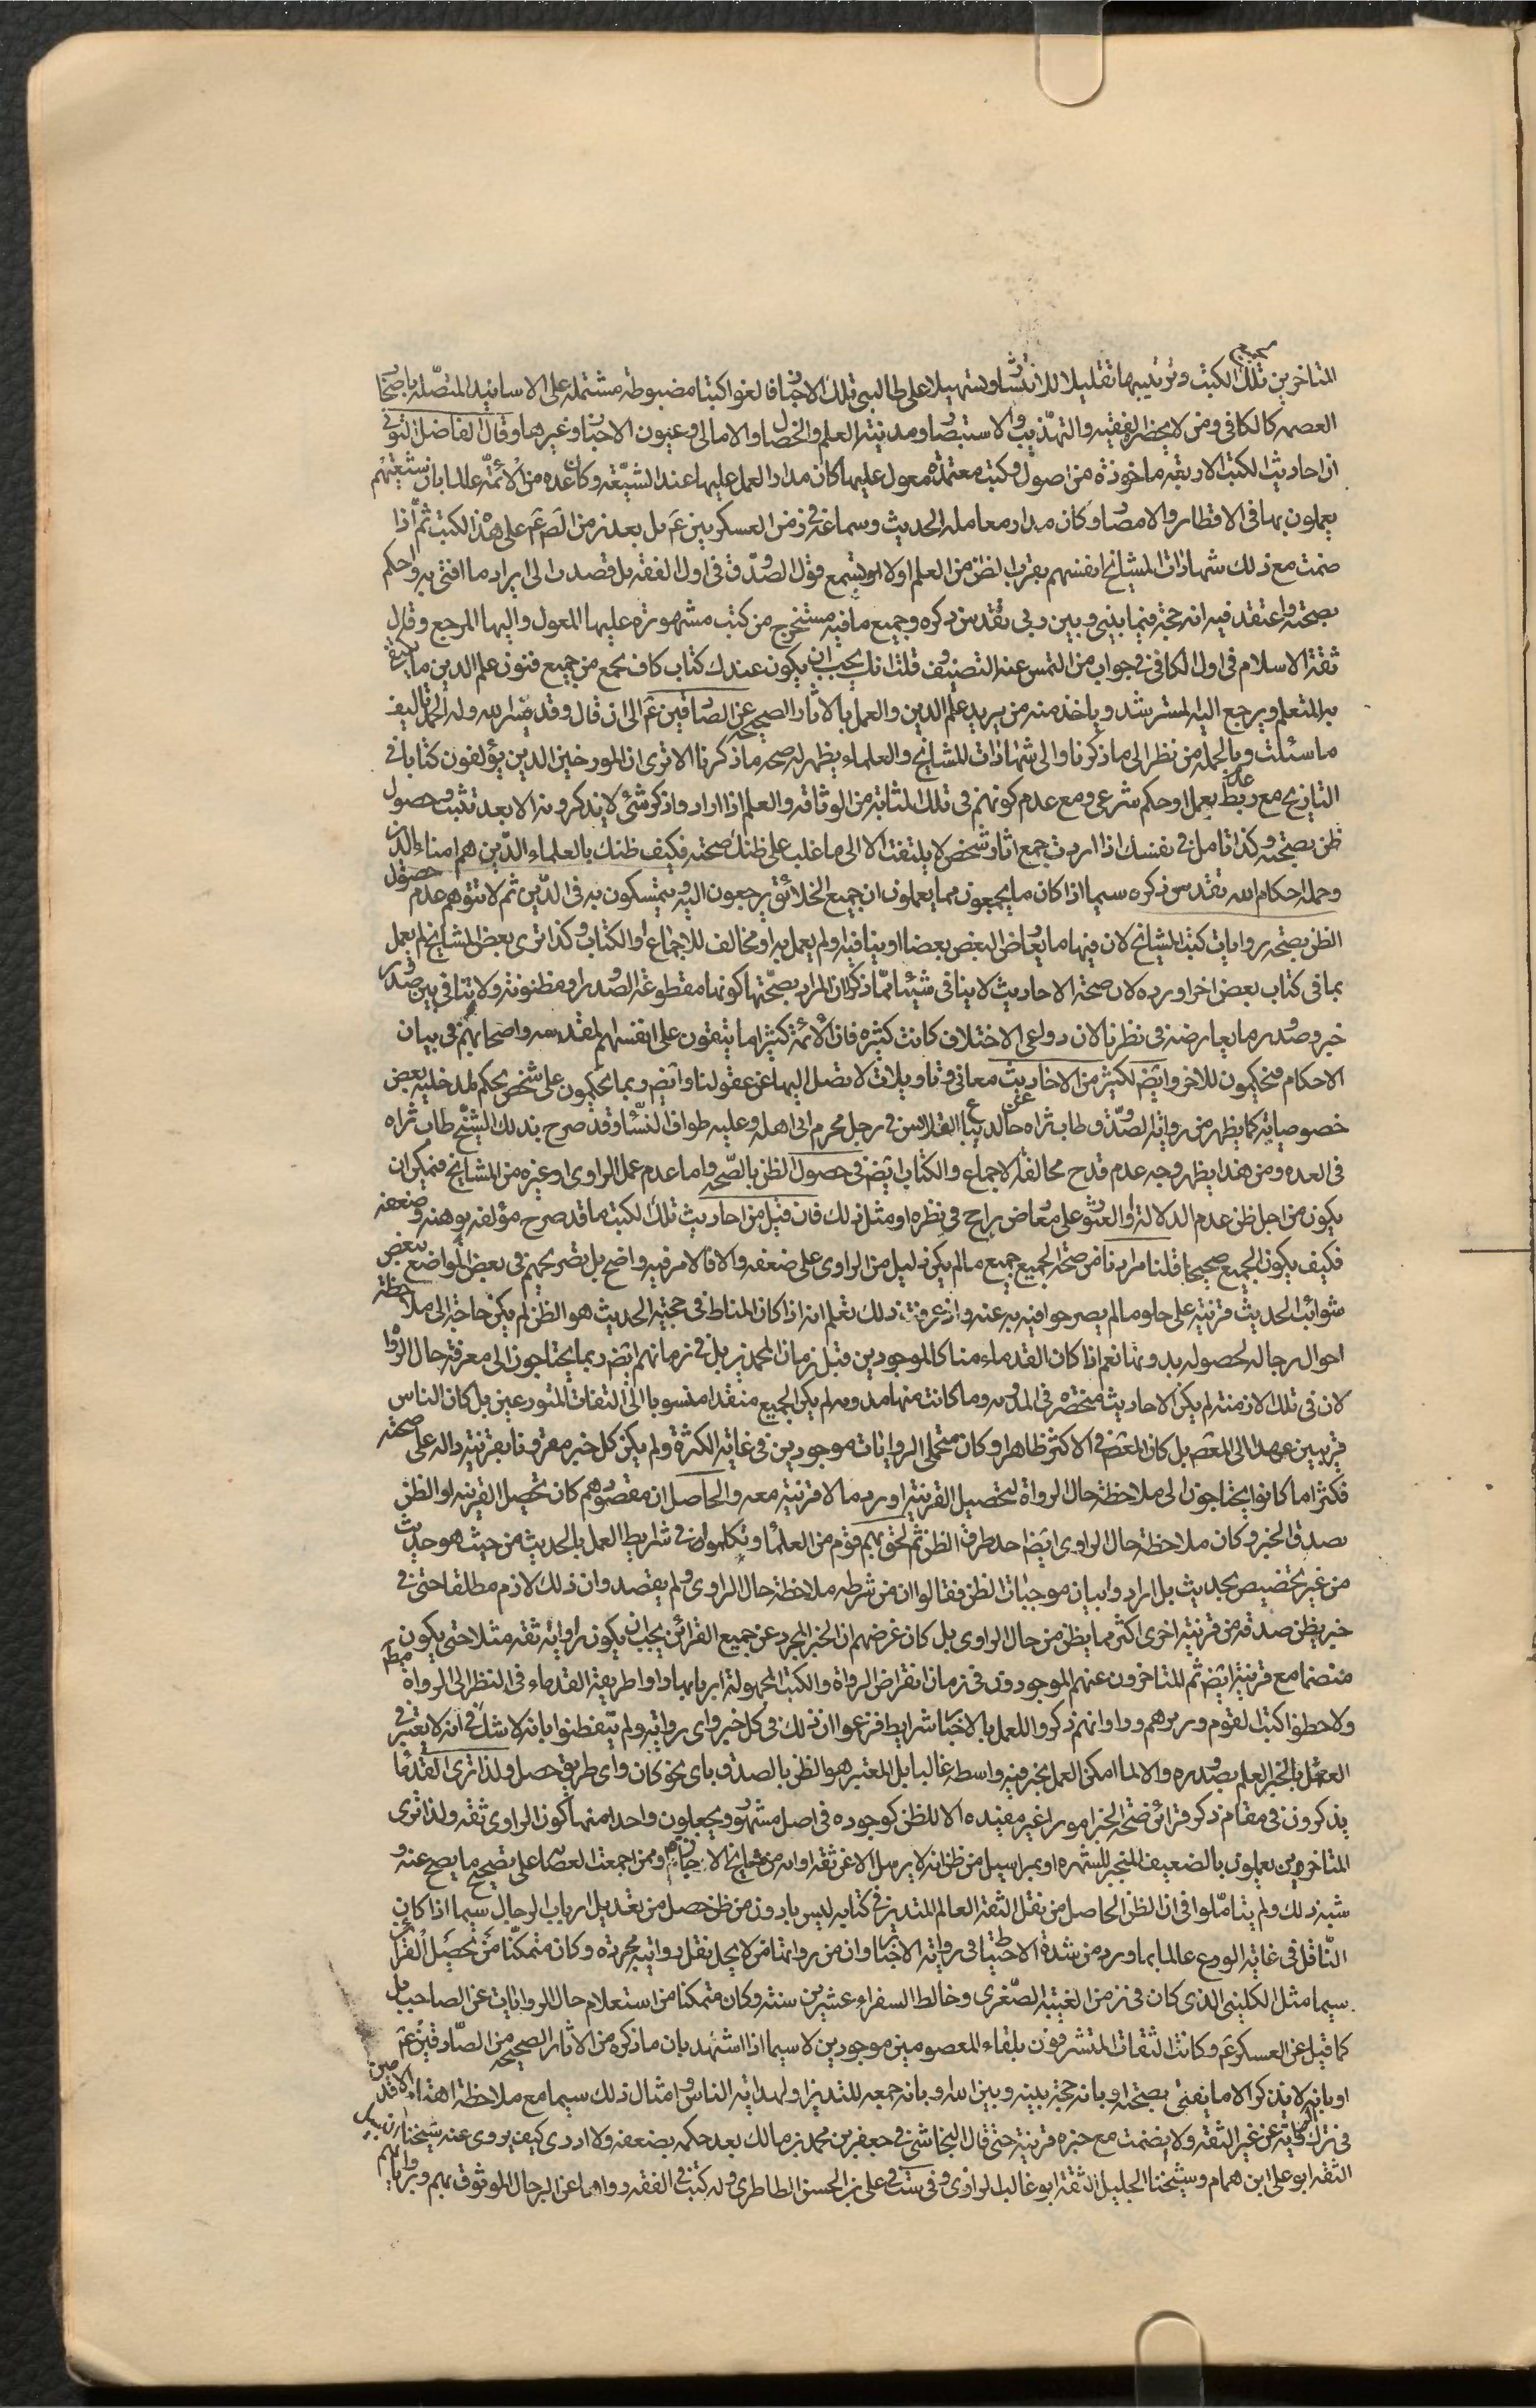 المتاخرين تلك الكتب وترتيبها تقليلا للانتشار وتسهيلا على طالبى تلك الاخبار فالفوا كتبا مضبوطة مشتملة على الاسانيد المتصلة باصحاب
العصمه كالكافى ومن لا يحضره الفقيه والتهذيب والاستبصار ومدينة العلم والخصال والامالى وعيون الاخبار وغيرها وقال الفاضل التونى
ان احاديث الكتب الاربعة ماخوذة من اصول وكتب معتمدة معول عليها كان مدار العمل عليها عند الشيعة وكان عدة من الائمة عالما بان شيعتهم
يعملون بها فى الاقطار والامصار وكان مدار معاملة الحديث وسماعه فى زمن العسكريين ع بل بعد زمن الص ع على هذا الكتب ثم اذا
ضمت مع ذلك شهادات المشايخ انفسهم يقرب الظن من العلم اولا تسمع قول الصدوق فى اول الفقيه بل قصدت الى ايراد ما افتى به واحكم
بصحته واعتقد فيه انه حجة فيما بينى وبين ربى تقدس ذكره وجميع ما فيه مستخرج من كتب مشهورة عليها المعول واليها المرجع وقال
ثقة الاسلام فى اول الكافى فى جواب من التمس عنه التصنيف قلت انك يجب ان يكون عندك كتاب كاف يجمع من جميع فنون علم الدين ما يكتفى
به المتعلم ويرجع اليه المسترشد وياخذ منه من يريد علم الدين والعمل بالاثار الصحيحة عن الصادقين ع الى ان قال وقد يسر الله وله الحمد تاليف
ما سئلت وبالجملة من نظر الى ما ذكرنا والى شهادات المشايخ والعلماء يظهر له صحه ما ذكرنا الا ترى ان المورخين الذين يؤلفون كتابا فى
التاريخ مع عدم ربط بعمل او حكم شرعى ومع عدم كونهم فى تلك المثابة من الوثاقة والعلم اذا ارادوا ذكر شئ لا يذكرونه الا بعد تثبت وحصول
ظن بصحته وكذا تامل فى نفسك اذا اردت جمع اثار شخص لا يلتفت الا الى ما غلب على ظنك صحته فكيف ظنك بالعلماء الذين هم امناء الدين
وحملة احكام الله تقدس ذكره سيما اذا كان ما يجمعون مما يعملون ان جميع الخلائق يرجعون اليه ويتمسكون به فى الدين ثم لا تتوهم عدم حصول
الظن بصحة روايات كتب المشايخ لان فيها ما يعارض البعض بعضا او ينافيه ولم يعمل به او مخالف للاجماع او الكتاب وكذا ترى بعض المشايخ لم يعمل
بما فى كتاب بعض اخر او رده لان صحة الاحاديث لا ينافى شيئا مما ذكر لان المراد بصحتها كونها مقطوعة الصدور او مظنونته ولا تنافى بين صدور
خبر وصدور ما يعارضه فى نظرنا لان دواعى الاختلاف كانت كثيرة فان الائمة كثيرا ما يتقون على انفسهم المقدسه واصحابهم فى بيان
الاحكام فيحكمون للاخر وايضا لكثير من الاخاديث معانى وتاويلات لا تصل اليها عن عقولنا وايضا ربما يحكمون على شخص بحكم لمدخلية بعض
خصوصياته كما يظهر من رواية الصدوق طاب ثراه عن خالد بياع القلانس فى رجل محرم اتى اهله وعليه طواف النساء وقد صرح بذلك الشيخ طاب ثراه
فى العده ومن هذا يظهر وجه عدم قدح مخالفة الاجماع والكتاب ايضا فى حصول الظن بالصحه واما عدم عمل الراوى او غيره من المشايخ فيمكن ان
يكون من اجل ظن عدم الدلالة والعثور على معارض راجح فى نظره او مثل ذلك فان قيل من احاديث تلك الكتب مما قد صرح مؤلفه بوهنه وضعفه
فكيف يكون الجميع صحيحا قلنا مرادنا من صحة الجميع جميع ما لم يكن دليل من الراوى على ضعفه والا فالامر فيه واضح بل تصريحهم فى بعض المواضع ببعض
شوائب الحديث قرينة على خلو ما لم يصرحوا فيه به عنه واذ عرفت ذلك تعلم انه اذا كان المناط فى حجية الحديث هو الظن لم يكن حاجة الى ملاحظة
احوال رجاله لحصوله بدونها نعم اذا كان القدماء منا كالموجودين قبل زمان المحمدين بل فى زمانهم ايضا ربما يحتاجون الى معرفة حال الرواة
لان فى تلك الازمنة لم يكن الاحاديث منحصرة فى المدونه وما كانت منها مدونه لم يكن الجميع منقدا منسوبا الى الثقات المتورعين بل كان الناس
قريبين عهد الى المعصم بل كان المعصم فى الاكثر ظاهرا وكان متحملى الروايات موجودين فى غاية الكثرة ولم يكن كل خبر مقرونا بقرينة دالة على صحته
فكثيرا ما كانوا يحتاجون الى ملاحظة حال الرواة لتحصيل القرينة او رد ما لا قرينة معه والحاصل ان مقصودهم كان تحصيل القرينه او الظن
بصدق الخبر وكان ملاحظة حال الراوى ايضا احد طرق الظن ثم لحق بهم قوم من العلماء وتكلموا فى شرايط العمل بالحديث من حيث هو حديث
من غير تخصيص بحديث بل ارادوا بيان موجبات الظن فقالوا ان من شرطه ملاحظة حال الراوى ولم يقصدوا ان ذلك لازم مطلقا حتى فى
خبر يظن صدقه من قرينة اخرى اكثر مما يظن من حال الراوى بل كان غرضهم ان الخبر المجرد عن جميع القرائن يجب ان يكون راوية ثقه مثلا حتى يكون
منضما مع قرينة ايضا ثم المتاخرون عنهم الموجودون فى زمان انقراض الرواة والكتب المجهولة اربابها راوا طريقة القدماء فى النظر الى الرواة
ولاحظوا كتب القوم وراوا انهم ذكروا للعمل بالاخبار شرايط فزعموا ان ذلك فى كل خبر واى رواية ولم يتفطنوا بانه لا شك فى انه لا يعتبر فى
العمل بالخبر العلم بصدوره والا لما امكن العمل بخبر فيه واسطه غالبا بل المعتبر هو الظن بالصدق باى نحو كان واى طريق حصل ولذا ترى القدماء
يذكرون فى مقام ذكر قرائن صحة الخبر امورا غير مفيده الا للظن كوجوده فى اصل مشهور ويجعلون واحدا منها كون الراوى ثقه ولذا ترى
المتاخرين يعملون بالضعيف المنجبر للشهره او بمراسيل من ظن انه لا يرسل الا عن ثقه او انه من مشايخ الاجازة وممن اجمعت العصابة على تصحيح ما يصح عنه و
شبه ذلك ولم يتاملوا فى ان الظن الحاصل من نقل الثقة العالم المتدين فى كتابه ليس بادون من ظن حصل من تعديل ارباب الرجال سيما اذا كان
الناقل فى غاية الورع عالما بما ورد من شدة الاحتياط فى رواية الاخبار وان من روايتنا من لا يحل نقل روايته مجردة وكان متمكنا من تحصيل القرائن
سيما مثل الكلينى الذى كان فى زمن الغيبة الصغرى وخالط السفراء عشرين سنة وكان متمكنا من استعلام حال الروايات عن الصاحب بل
كما قيل عن العسكرى ع وكانت الثقات المتشرفون بلقاء المعصومين موجودين لا سيما اذا اشهد بان ما ذكره من الاثار الصحيحه من الصادقين ع
او بانه لا يذكر الا ما يفتى بصحته او بانه حجة بينه وبين الله وبانه جمعه للتدين او لهداية الناس وامثال ذلك سيما مع ملاحظة اهتداء الاقدمين
فى ترك رواية عن غير الثقة ولا يضمنت مع خبره قرينة حتى قال النجاشى فى جعفر بن محمد بن مالك بعد حكمه بضعفه ولا ادرى كيف يروى عنه شيخنا النبيل
الثقه ابو على ابن همام وشيخنا الجليل الثقة ابو غالب الرازى وفى ست فى على بن الحسن الطاطرى وله كتب فى الفقه رواها عن الرجال الموثوق بهم وبرواياتهم